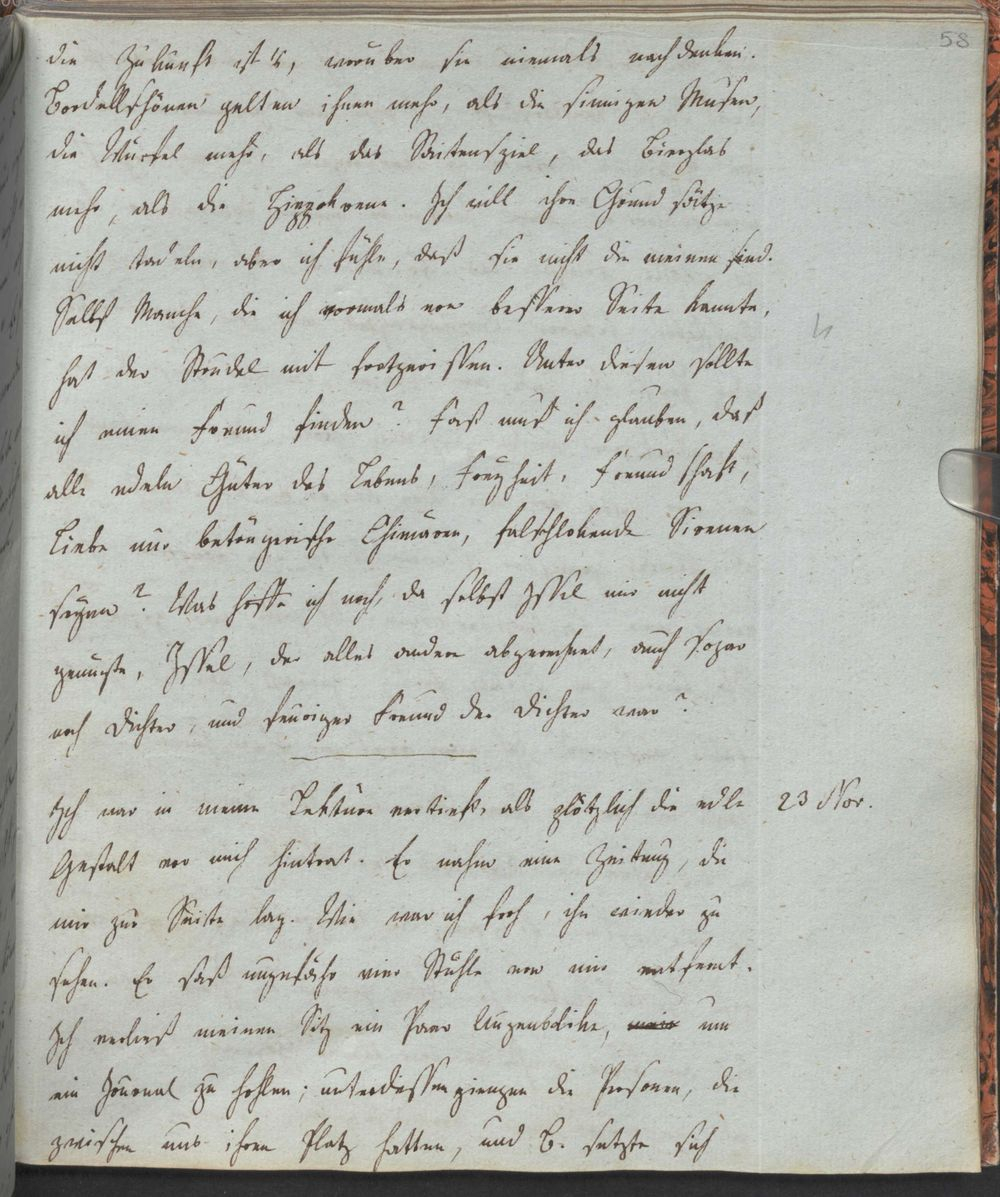 58
die Zukunft ist's, worüber sie niemals nachdenken.
Bordellschönen gelten ihnen mehr, als die sinnigen Musen,
die Würfel mehr, als das Saitenspiel, das Bierglas
mehr, als die Hippokrene. Ich will ihre Grundsätze
nicht tadeln, aber ich fühle, daß sie nicht die meinen sind.
Selbst Manche, die ich vormals von besserer Seite kannte,
hat der Strudel mit fortgerissen. Unter diesen sollte
ich einen Freund finden? Fast muß ich glauben, daß
alle edeln Güter des Lebens, Freyheit, Freundschaft,
Liebe nur betrügerische Chimären, falschlokende Sirenen
seyen? Was hoffe ich noch, da selbst Issel mir nicht
genügte, Issel, der alles andere abgerechnet, auch sogar
noch Dichter, und feuriger Freund der Dichter war?
Ich war in meine Lektüre vertieft, als plötzlich die edle 23 Nov.
Gestalt vor mich hintrat. Er nahm eine Zeitung, die
mir zur Seite lag. Wie war ich froh, ihn wieder zu
sehen. Er saß ungefähr vier Stühle von mir entfernt.
Ich verließ meinen Sitz ein Paar Augenblike, um
ein Journal zu hohlen; unterdessen giengen die Personen, die
zwischen uns ihren Platz hatten, und B. setzte sich